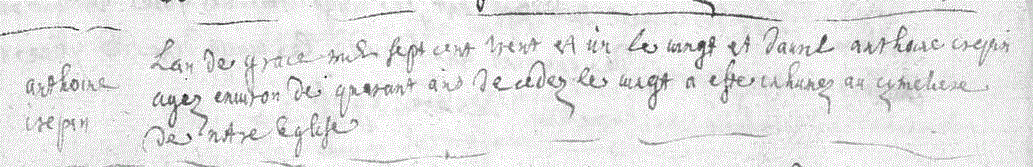 Lan de grace mil sept cent trent et un le vingt et d'avril anthoine crepin
anthoine
agez environ de quarant ans decedez le vingt a este inhumez au cymetiere
crepin
de notre Eglise